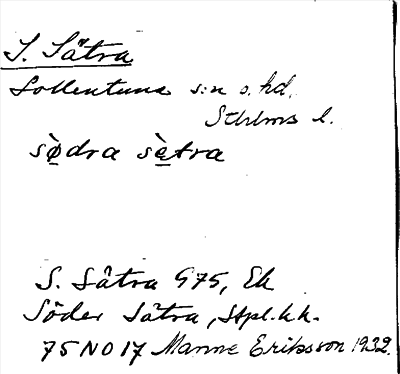 S. Sätra
Sollentuna s:n o. hd.
Sthlms l.
sø̀dra sè̱tra
S. Sätra G75, Ek
Söder Sätra, Stpl.k.k.
75 NO 17 Manne Eriksson 1932.